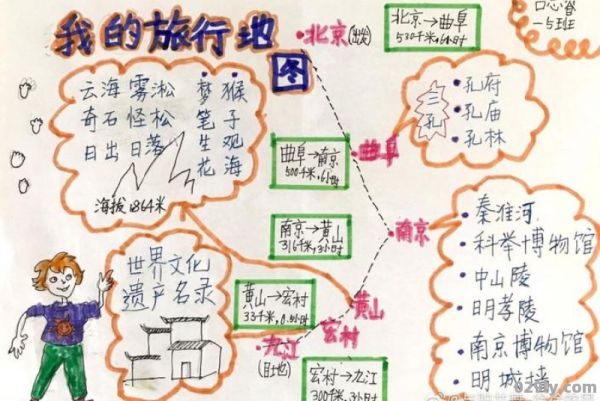 我的旅行地图
北京(出发)
北京→曲阜
530千米,6小时
一5班
云海 雾淞
奇石 怪松
日出 日落
梦笔生花
猴子观海
海拔1864米
三孔
孔府
孔庙
孔林
曲阜
曲阜→南京
500千米,6小时
南京
南京→黄山
316千米,3小时
秦淮河
科举博物馆
中山陵
明孝陵
南京博物馆
明城墙
世界文化
遗产名录
黄山→宏村
33千米,0.5小时
黄山
宏村
九江
(目地)
宏村→九江
300千米,3小时